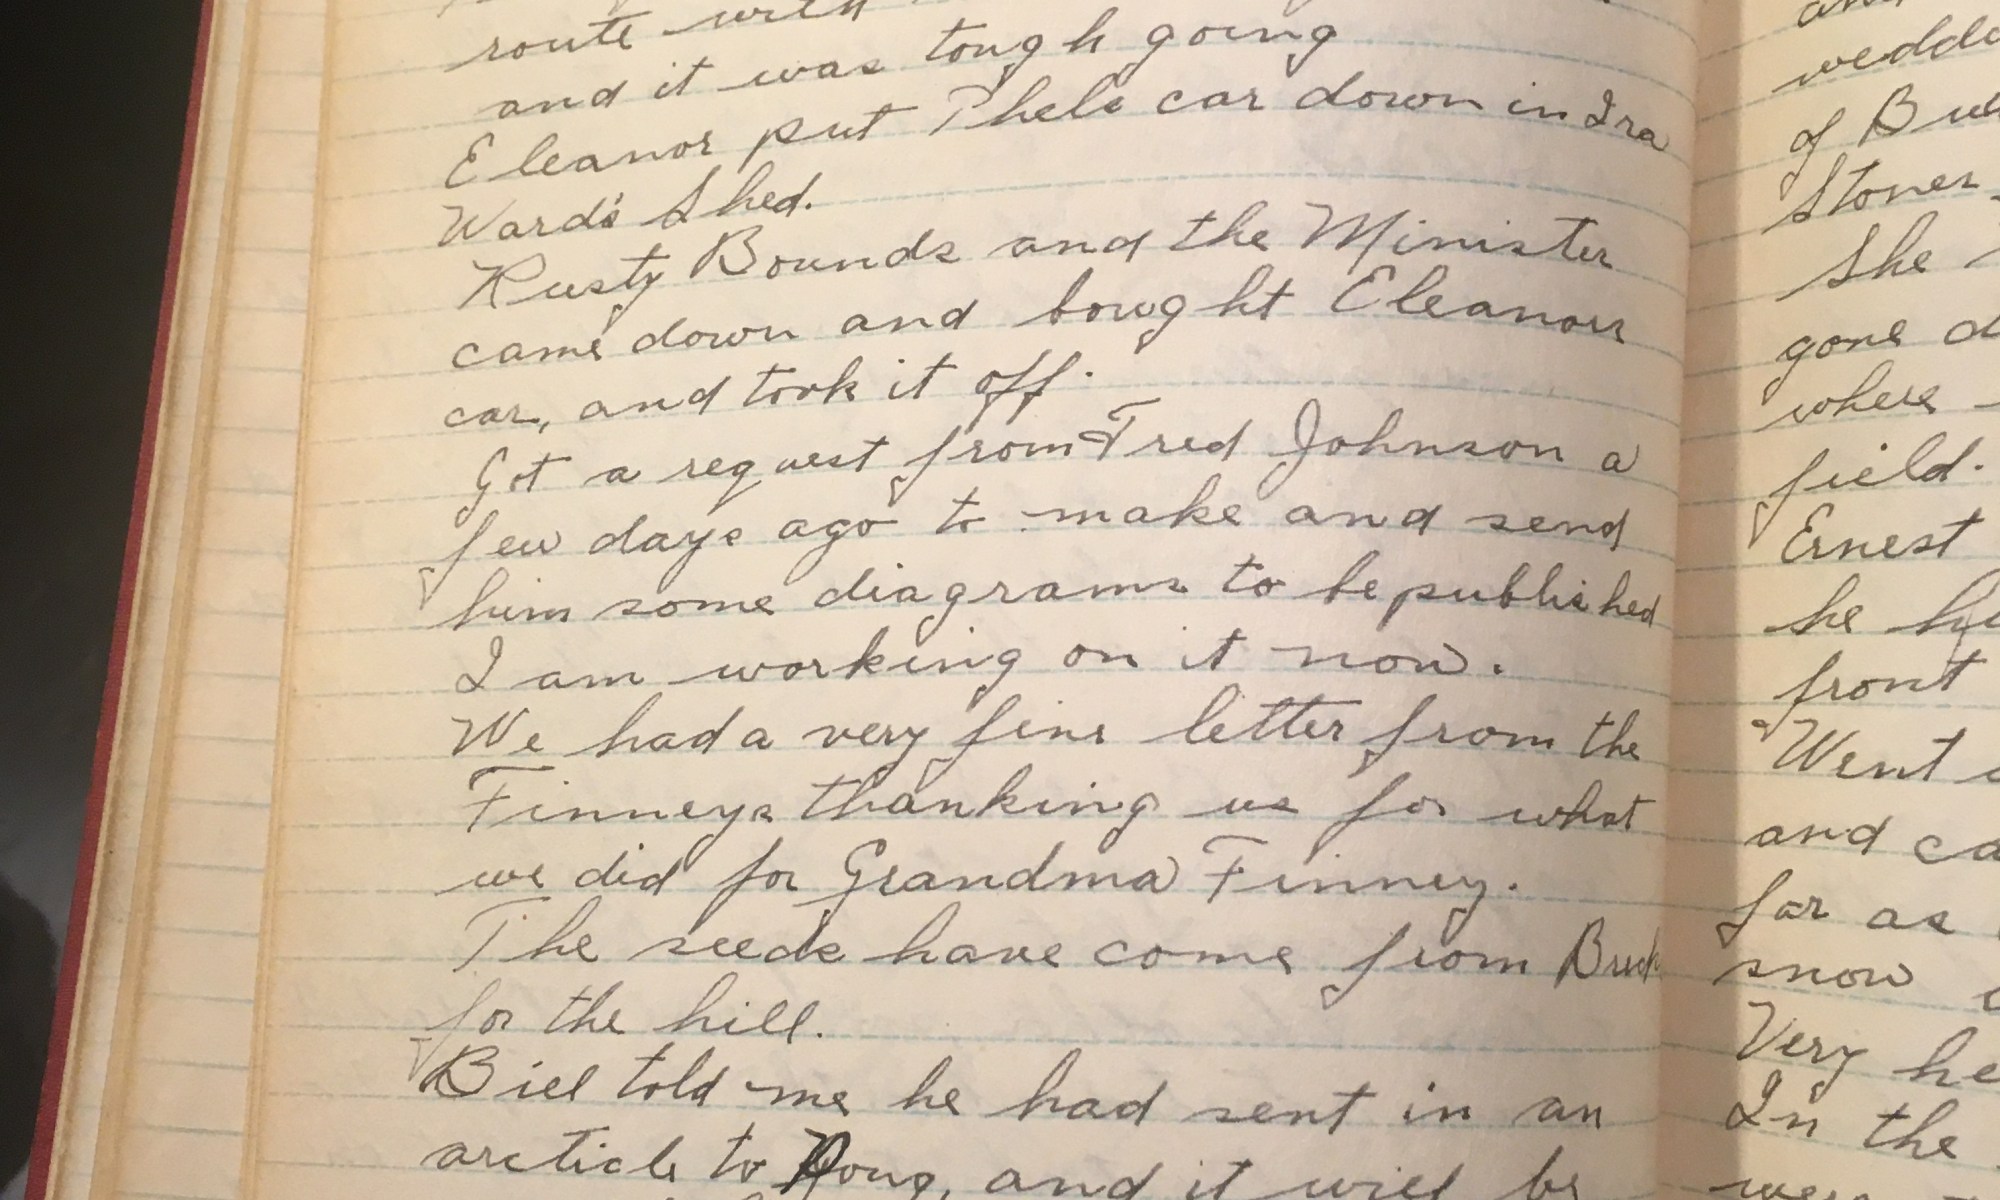 route with
and it was tough going
Eleanor put Phels car down in Ira
Ward's Shed.
Rusty Bounds and the Minister
came down and bought Eleanors
car, and took it off.
Got a request from Fred Johnson a
few days ago to make and send
him some diagrams to be published
I am working on it now.
We had a very fine letter from the
Finneys thanking us for what
we did for Grandma Finney.
The seeds have come from Buck
for the hill.
Bill told me he had sent in an
arcticle to Doug, and it will be
wedd
of B
Stones
She
gone d
where
field.
Ernest
he h
front
Went
and ca
far as
snow
Very he
In the